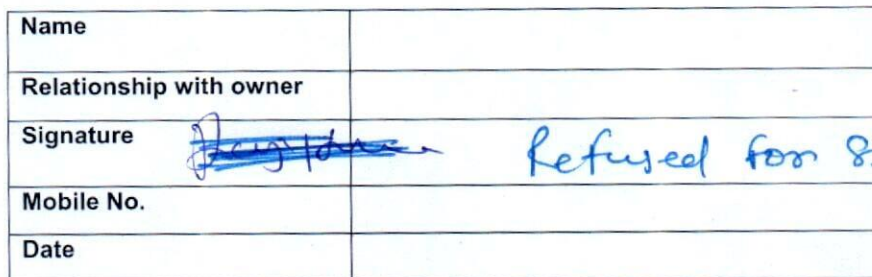 Name
Relationship with owner
Signature Refused for S
Mobile No.
Date